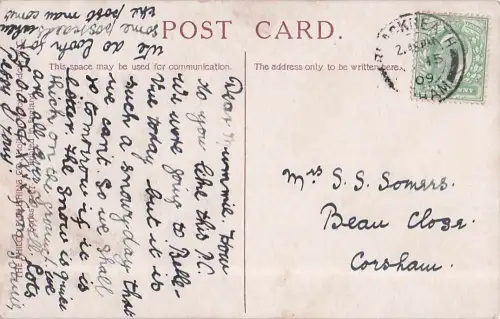 POST CARD.
This space may be used for communication.
The address only to be written here.
BLACKHEATH
2.45 PM
15
09
HAM
Dear Mummie. How
do you like this P.C.
We were going to Belle-
Vue today but it is
such a snowy day that
we can't. So we shall
go tomorrow if it is
better. The snow is quite
thick on the ground. We
are all quite well. Lots
of love
We do look for
some postcards when
the post man comes
Mrs S. S. Somers.
Beau Close.
Corsham.